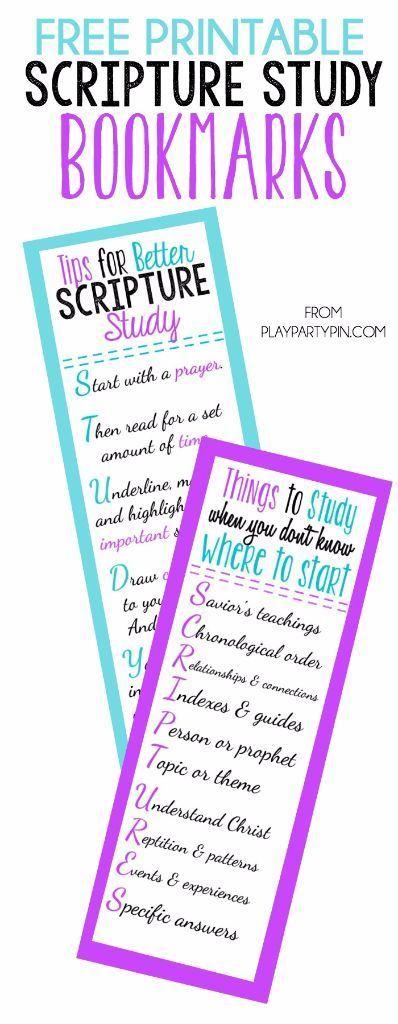 FREE PRINTABLE
SCRIPTURE STUDY
BOOKMARKS
Tips for Better
SCRIPTURE
Study
FROM
PLAYPARTYPIN.COM
Start with a prayer.
Then read for a set
amount of
Underline,
and highlight
important
Draw
to you
And
Things to Study
when you don't know
where to start
Savior's teachings
Chronological order
Relationships & connections
Indexes & guides
Person or prophet
Topic or theme
Understand Christ
Reptition & patterns
Events & experiences
Specific answers